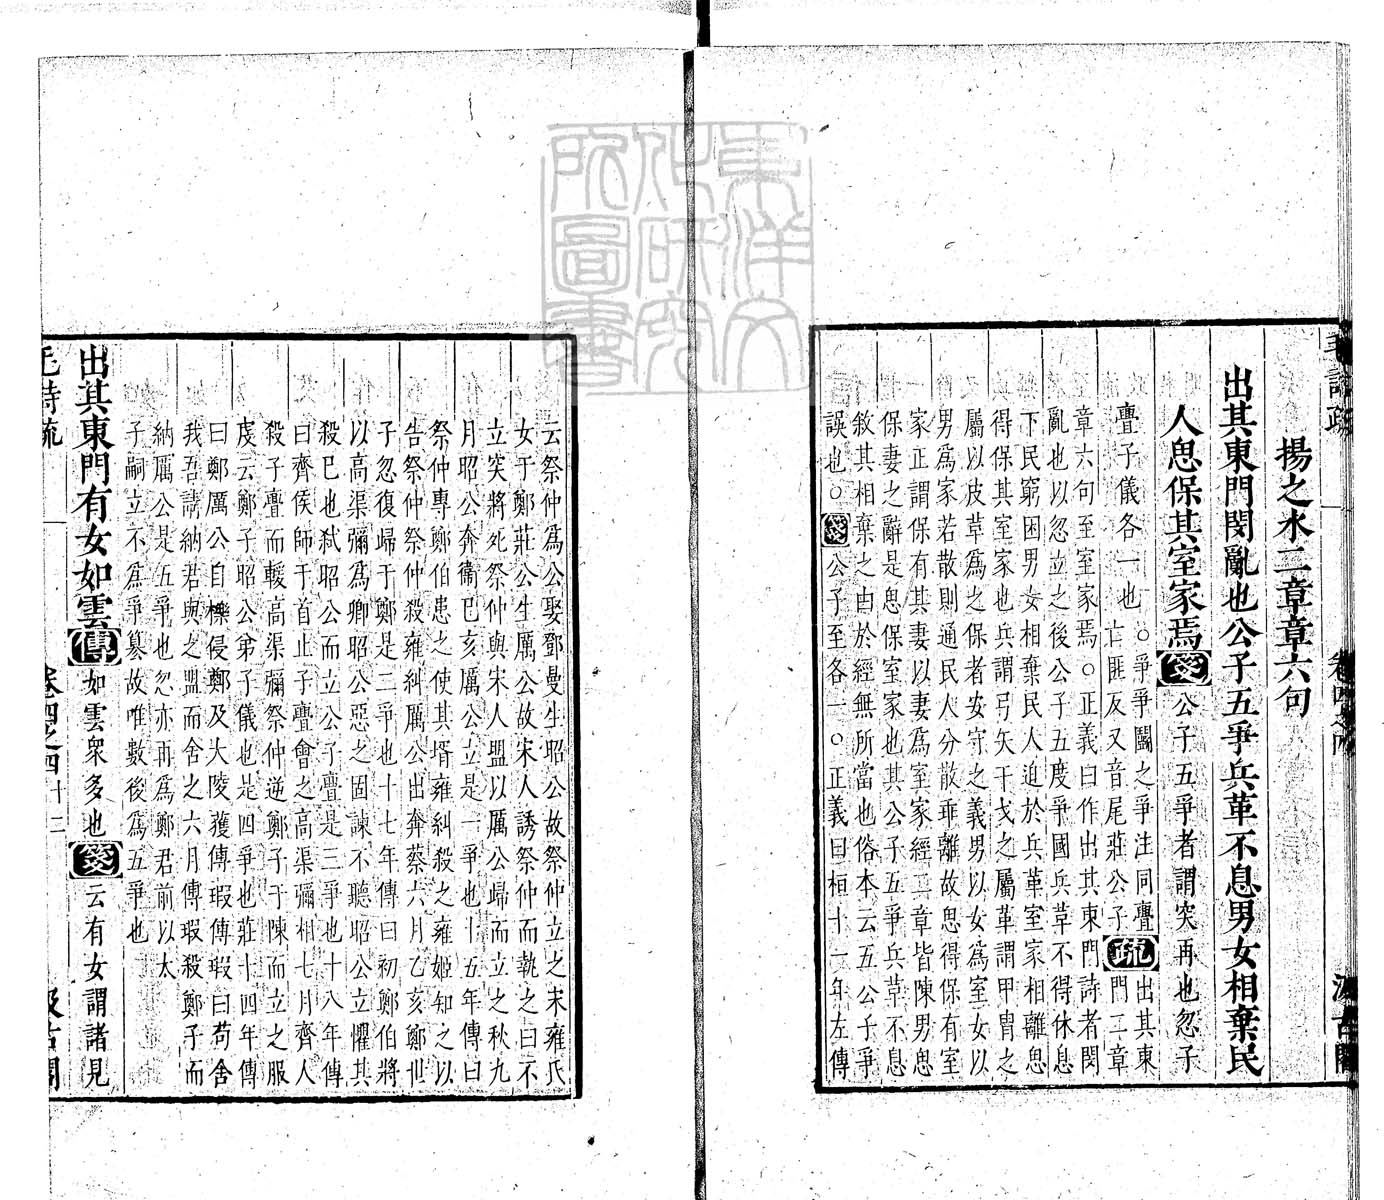 揚之水二章章六句
出其東門閔亂也公子五爭兵革不息男女相棄民
人思保其室家焉箋公子五爭者謂突再也忽子
亹子儀各一也○爭爭鬭之爭注同亹
亡匪反又音尾莊公子疏出其東
門二章
章六句至室家焉○正義曰作出其東門詩者閔
亂也以忽立之後公子五度爭國兵革不得休息
下民窮困男女相棄民人迫於兵革室家相離思
得保其室家也兵謂弓矢干戈之屬革謂甲冑之
屬以皮革爲之保者安守之義男以女爲室女以
男爲家若散則通民人分散乖離故思得保有室
家正謂保有其妻以妻爲室家經二章皆陳男思
保妻之辭是思保室家也其公子五爭兵革不息
敘其相棄之由於經無所當也俗本云五公子爭
誤也○箋公子至各一○正義曰桓十一年左傳
云祭仲爲公娶鄧曼生昭公故祭仲立之宋雍氏
女于鄭莊公生厲公故宋人誘祭仲而執之曰不
立突將死祭仲與宋人盟以厲公歸而立之秋九
月昭公奔衞巳亥厲公立是一爭也十五年傳曰
祭仲專鄭伯患之使其壻雍糾殺之雍姬知之以
告祭仲祭仲殺雍糾厲公出奔蔡六月乙亥鄭世
子忽復歸于鄭是二爭也十七年傳曰初鄭伯將
以高渠彌爲卿昭公惡之固諫不聽昭公立懼其
殺巳也弒昭公而立公子亹是三爭也十八年傳
曰齊侯師于首止子亹會之高渠彌相七月齊人
殺子亹而轘高渠彌祭仲逆鄭子于陳而立之服
虔云鄭子昭公弟子儀也是四爭也莊十四年傳
曰鄭厲公自櫟侵鄭及大陵獲傅瑕傅瑕曰苟舍
我吾請納君與之盟而舍之六月傅瑕殺鄭子而
納厲公是五爭也忽亦再爲鄭君前以太
子嗣立不爲爭篡故唯數後爲五爭也
出其東門有女如雲傳如雲衆多也箋云有女謂諸見
毛詩疏 卷四之四 十二 汲古閣